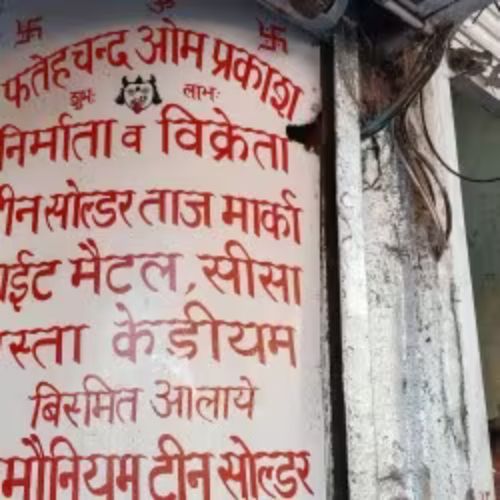 ॐ
फतेहचन्द ओम प्रकाश
शुभः लाभः
निर्माता व विक्रेता
टीन सोल्डर ताज मार्का
मैटल, सीसा
केडीयम
बिस्मित आलाये
टीन सोल्डर